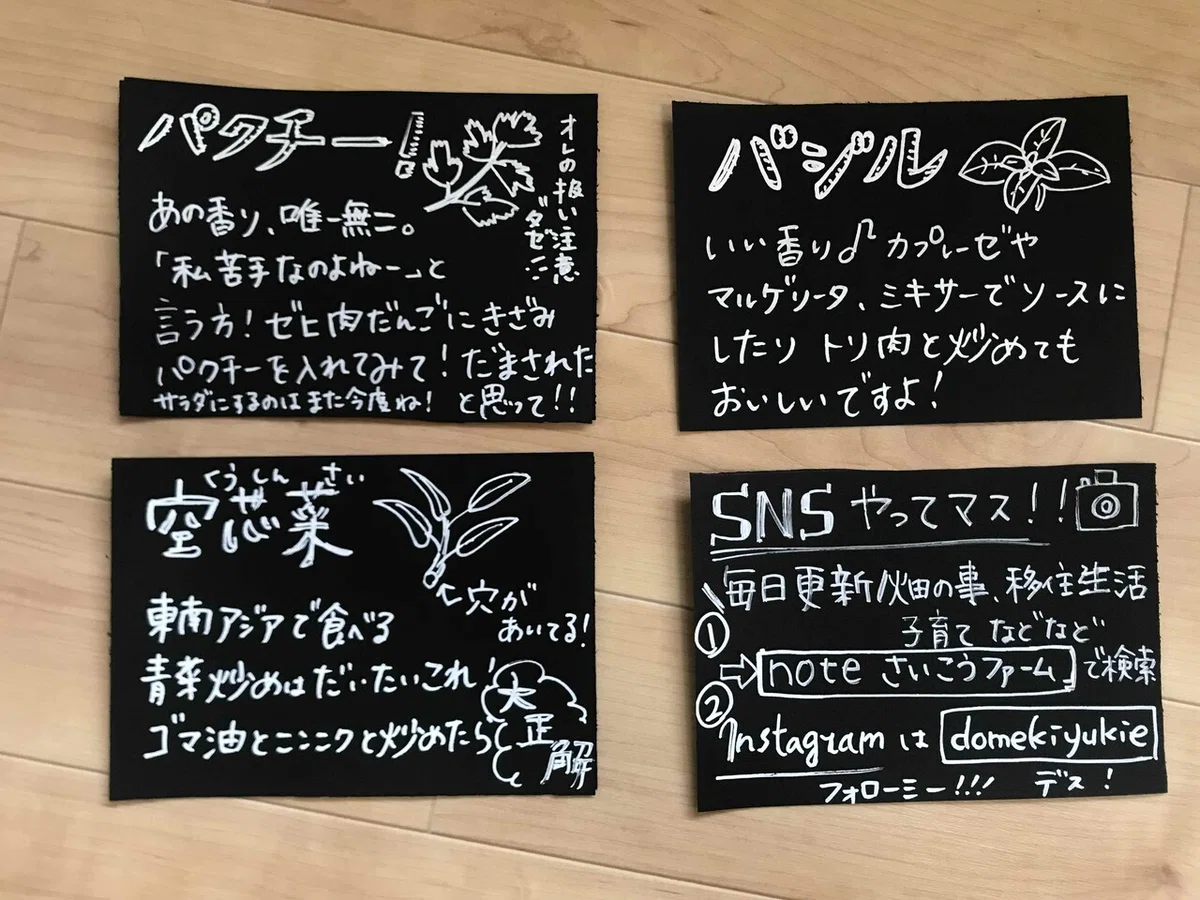 パクチー!
オレの扱い注意
ダゼ!!
あの香り、唯一無二。
「私苦手なのよねー」と
言う方!ゼヒ肉だんごにきざみ
パクチーを入れてみて!だまされた
と思って!!
サラダにするのはまた今度ね!
バジル
いい香り♪カプレーゼや
マルゲリータ、ミキサーでソースに
したり トリ肉と炒めても
おいしいですよ!
くうしんさい
空芯菜
←穴が
あいてる!
東南アジアで食べる
青菜炒めはだいたいこれ!
ゴマ油とニンニクと炒めたら
大正解
SNSやってマス!!
毎日更新/畑の事、移住生活
子育てなどなど
①
⇨note さいこうファーム で検索
②
Instagramは domekiyukie
フォローミー!!! デス!